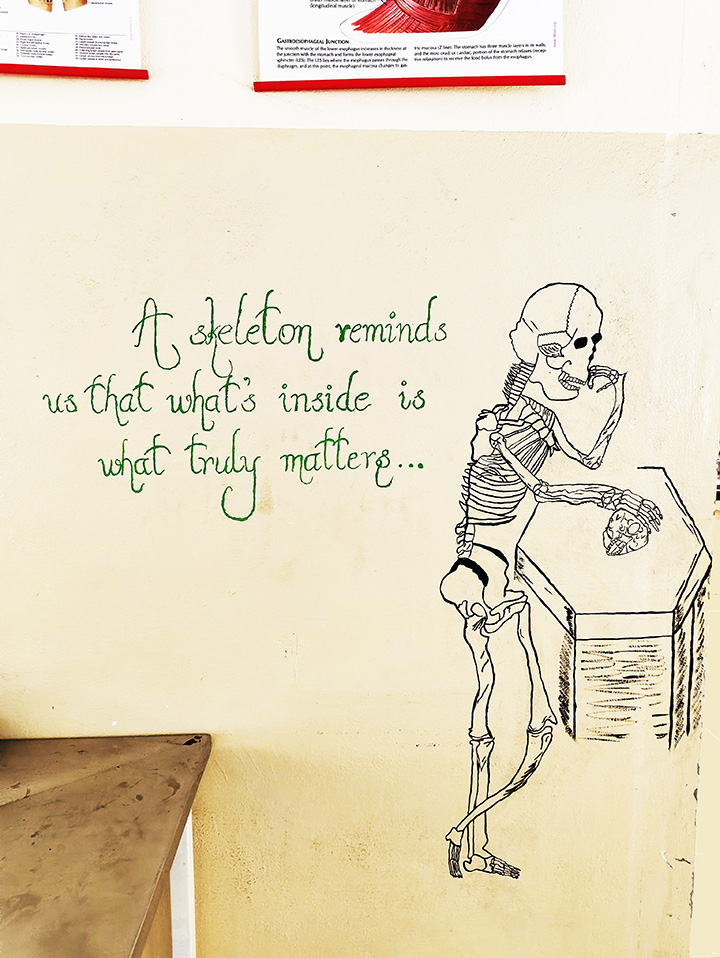 (longitudinal muscle)
GASTROESOPHAGEAL JUNCTION
The smooth muscle of the lower esophagus increases in thickness at
the junction with the stomach and forms the lower esophageal
sphincter (LES). The LES lies where the esophagus passes through the
diaphragm, and at this point, the esophageal mucosa changes to gas-
tric mucosa (Z line). The stomach has three muscle layers in its walls,
and the most orad, or cardiac, portion of the stomach relaxes (recep-
tive relaxation) to receive the food bolus from the esophagus.
A skeleton reminds
us that what's inside is
what truly matters...